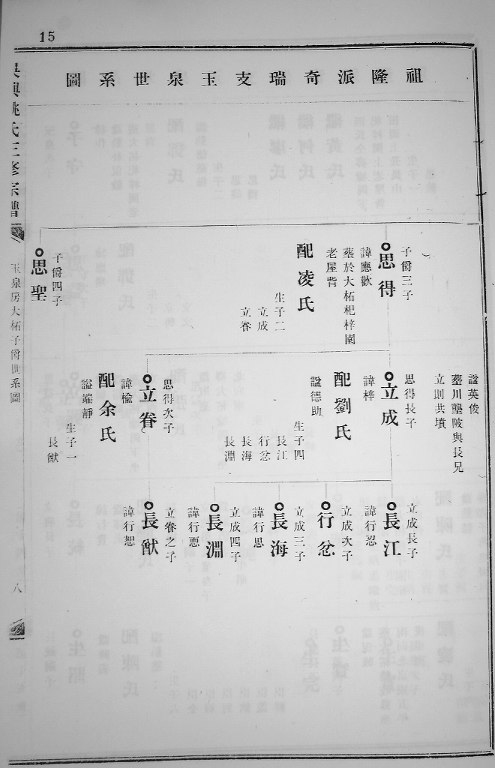 15
祖隆派奇瑞支玉泉世系圖
吳興姚氏三修宗譜
玉泉房大柘子爵世系圖
八
子爵三子
思得
諱應歡
墓於大柘杷梓園
老屋背
配凌氏
生子二
立成
立眷
子爵四子
思聖
諡英俊
墓川壟陂與長兄
立則共墳
思得長子
立成
諱梓
配劉氏
諡德助
生子四
長江
行忿
長海
長淵
思得次子
立眷
諱楡
配余氏
諡端靜
生子一
長猷
立成長子
長江
諱行忍
立成次子
行忿
立成三子
長海
諱行思
立成四子
長淵
諱行慝
立眷之子
長猷
諱行恕